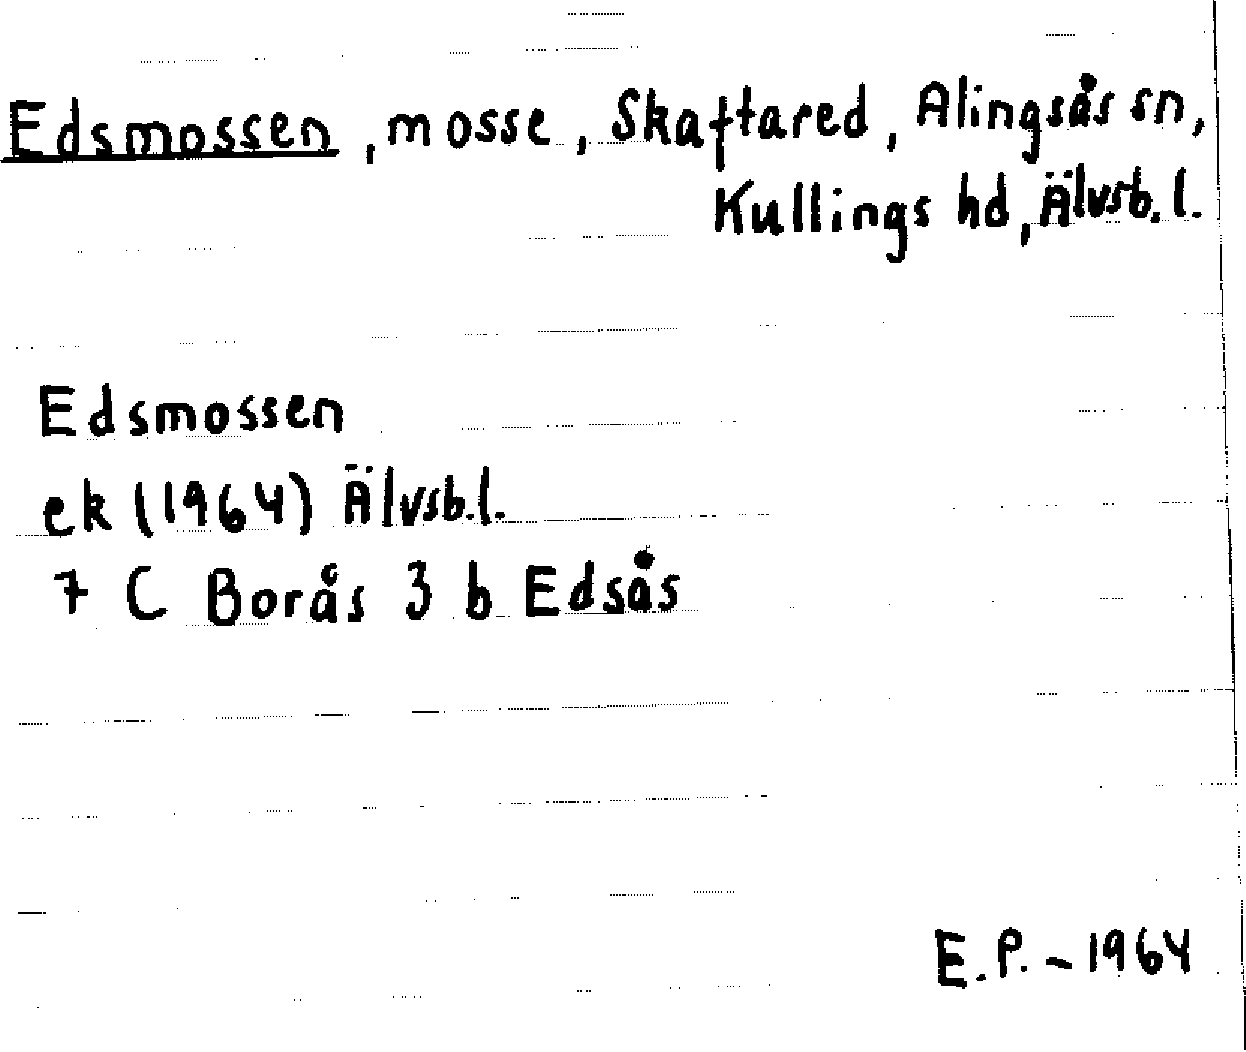 Edsmossen, mosse, Skaftared, Alingsås sn,
Kullings hd, Älvsb. l.
Edsmossen
ek (1964) Älvsb.l.
7 C Borås 3 b Edsås
E.P. - 1964